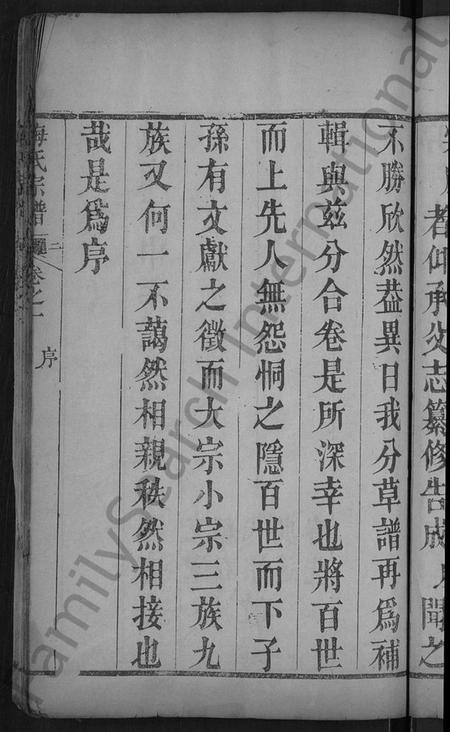 者仰承父志纂修告成人聞之
不勝欣然葢異日我分草譜再爲補
輯與兹分合卷是所深幸也將百世
而上先人無怨恫之隱百世而下子
孫有文獻之徵而大宗小宗三族九
族又何一不藹然相親秩然相接也
哉是爲序
氏宗譜 卷之一 序
FamilySearch International